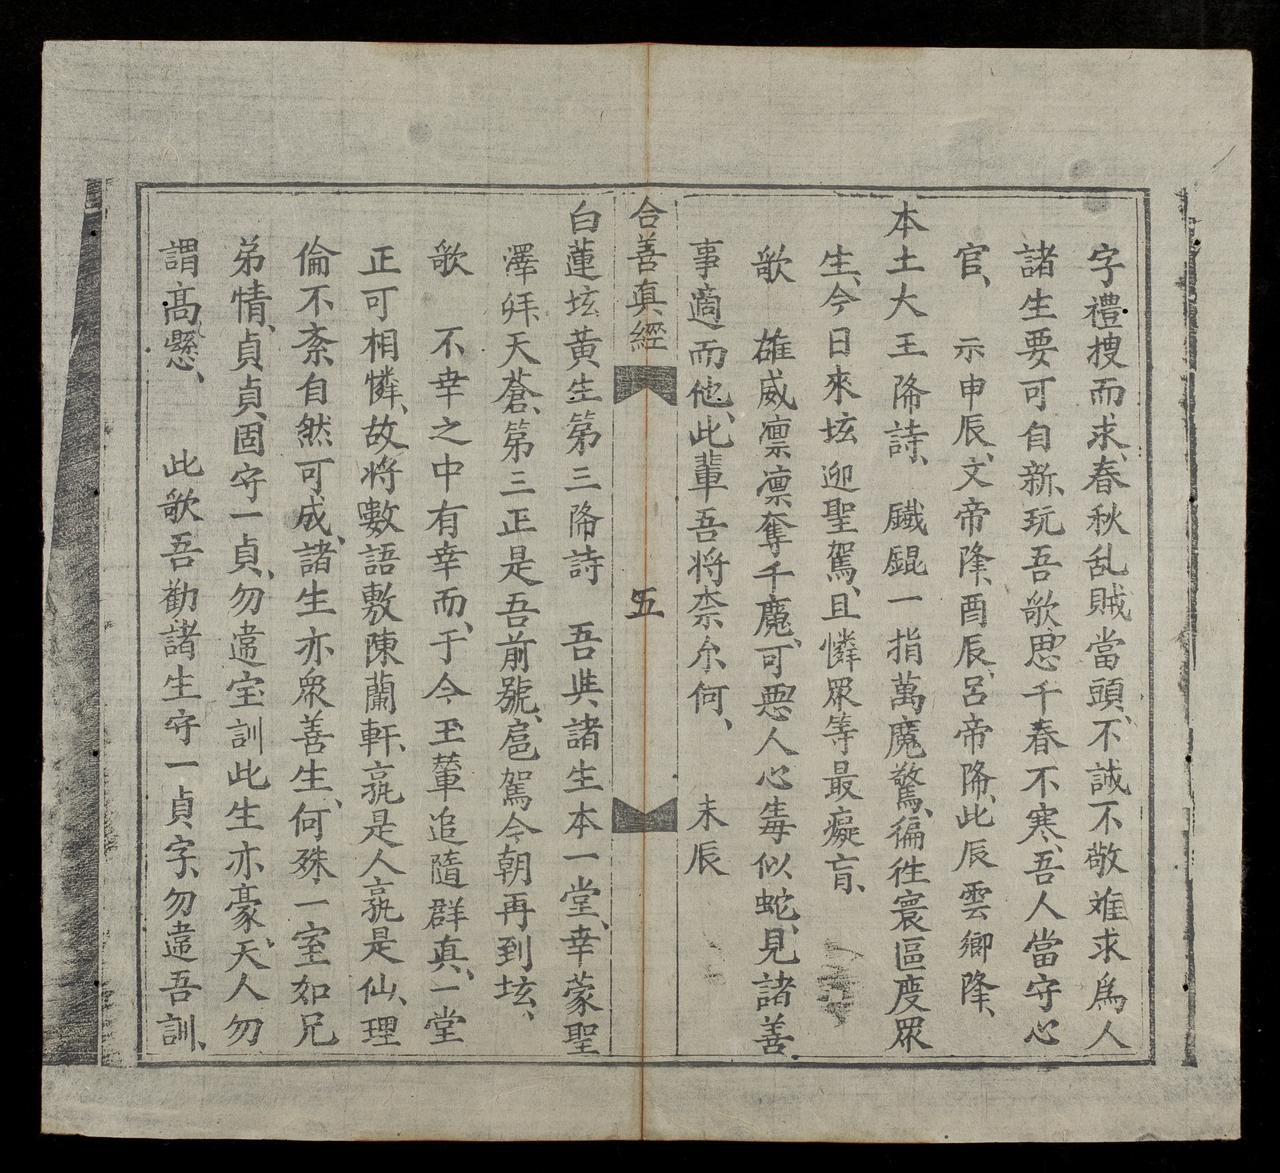 字禮搜而求、春秋乱賊當頭、不誠不敬难求爲人
諸生要可自新、玩吾歌思千春不寒、吾人當守心
官、示申辰、文帝降、酉辰、呂帝降、此辰雲鄉降、
本土大王降詩、鐵錕一指萬魔驚、徧徃寰區度眾
生、今日來坛迎聖駕、且憐眾等最癡肓、
歌 雄威凛凛奪千魔、可惡人心毒似蛇、見諸善
事適而他、此輩吾将柰尔何、 未辰
合善真經 五
白蓮坛黃生第三降詩 吾與諸生本一堂、幸蒙聖
澤拜天蒼、第三正是吾前號、扈駕今朝再到坛、
歌 不幸之中有幸而、于今玉輦追隨群真、一堂
正可相憐、故将數語敷陳蘭軒、孰是人孰是仙、理
倫不紊自然可成、諸生亦眾善生、何殊一室如兄
弟情、貞貞固守一貞、勿違宝訓此生亦豪、天人勿
謂高懸、 此歌吾勸諸生守一貞字、勿違吾訓、